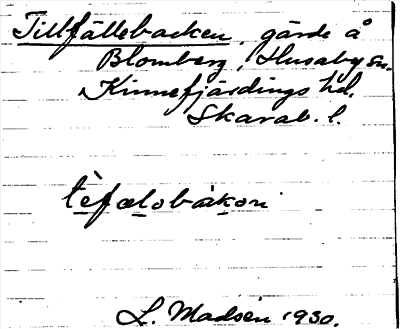 Tillfällebacken, gärde å
Blomberg, Husaby sn.
Kinnefjärdings hd.
Skarab. l.
tèfælobàkori
L. Madsén 1930.